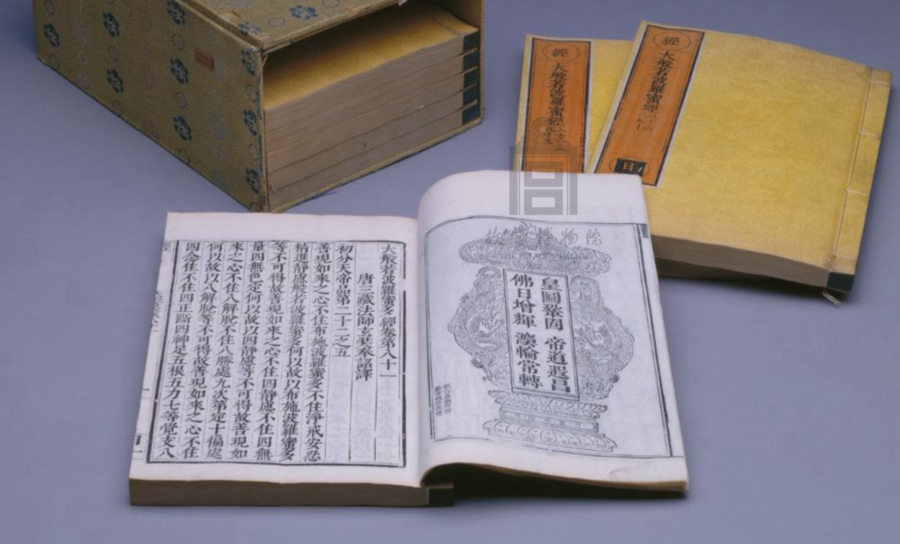 大般若波羅蜜多經卷第八十一
唐三藏法師玄奘奉詔譯
初分天帝品第二十二之五
善現如來之心不住布施波羅蜜多不住淨戒安忍
精進靜慮般若波羅蜜多何以故以布施波羅蜜多
等不可得故善現如來之心不住四靜慮不住四無
量四無色定何以故以四靜慮等不可得故善現如
來之心不住八解脫不住八勝處九次第定十徧處
何以故以八解脫等不可得故善現如來之心不住
四念住不住四正斷四神足五根五力七等覺支八
皇圖鞏固 帝道遐昌
佛日增輝 法輪常轉
經
大般若波羅蜜經
經
大般若波羅蜜經